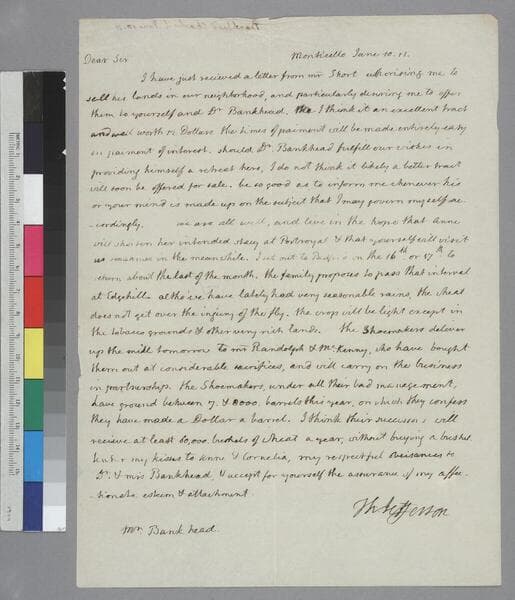 Dear Sir
Monticello June 10. 11.
I have just recieved a letter from mr Short authorising me to
sell his lands in our neighborhood, and particularly desiring me to offer
them to yourself and Dr Bankhead. I think it an excellent tract
and well worth Dollars the times of paiment will be made entirely easy
on paiment of interest. should Dr Bankhead fulfill our wishes in
providing himself a retreat here, I do not think it likely a better tract
will soon be offered for sale. be so good as to inform me whenever his
or your mind is made up on the subject that I may govern myself ac-
-cordingly. we are all well, and live in the hope that Anne
will shorten her intended stay at Portroyal & that yourself will visit
us in the meanwhile. I set out to Bedford on the 16th or 17th to
return about the last of the month. the family proposes to pass that interval
at Edgehill. altho' we have lately had very seasonable rains, the wheat
does not get over the injury of the fly. the crop will be light except in
the tobacco grounds & other very rich lands. the Shoemakers deliver
up the mill tomorrow to mr Randolph & McKenny, who have bought
them out at considerable sacrifices, and will carry on the business
in partnership. the Shoemakers, under all their bad management,
have ground between 7. & 8000. barrels this year, on which they confess
they have made a Dollar a barrel. I think their successors will
recieve at least 60,000. bushels of wheat a year, without buying a bushel.
my kisses to Anne & Cornelia, my respectful obeisances to
Dr. & mrs Bankhead, & accept for yourself the assurance of my affec-
-tionate esteem & attachment.
Th Jefferson
Mr. Bankhead